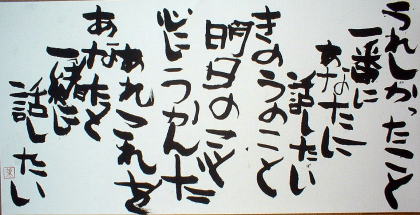 うれしかったこと
一番に
あなたに
話したい
きのうのこと
明日のこと
心にうかんだ
あれこれを
あなたと
一緒に
話したい